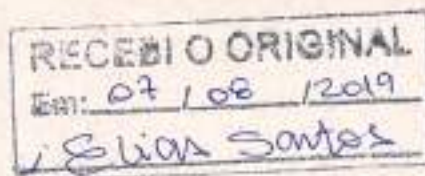 RECEBI O ORIGINAL
Em: 07 / 08 / 2019
Elias Santos